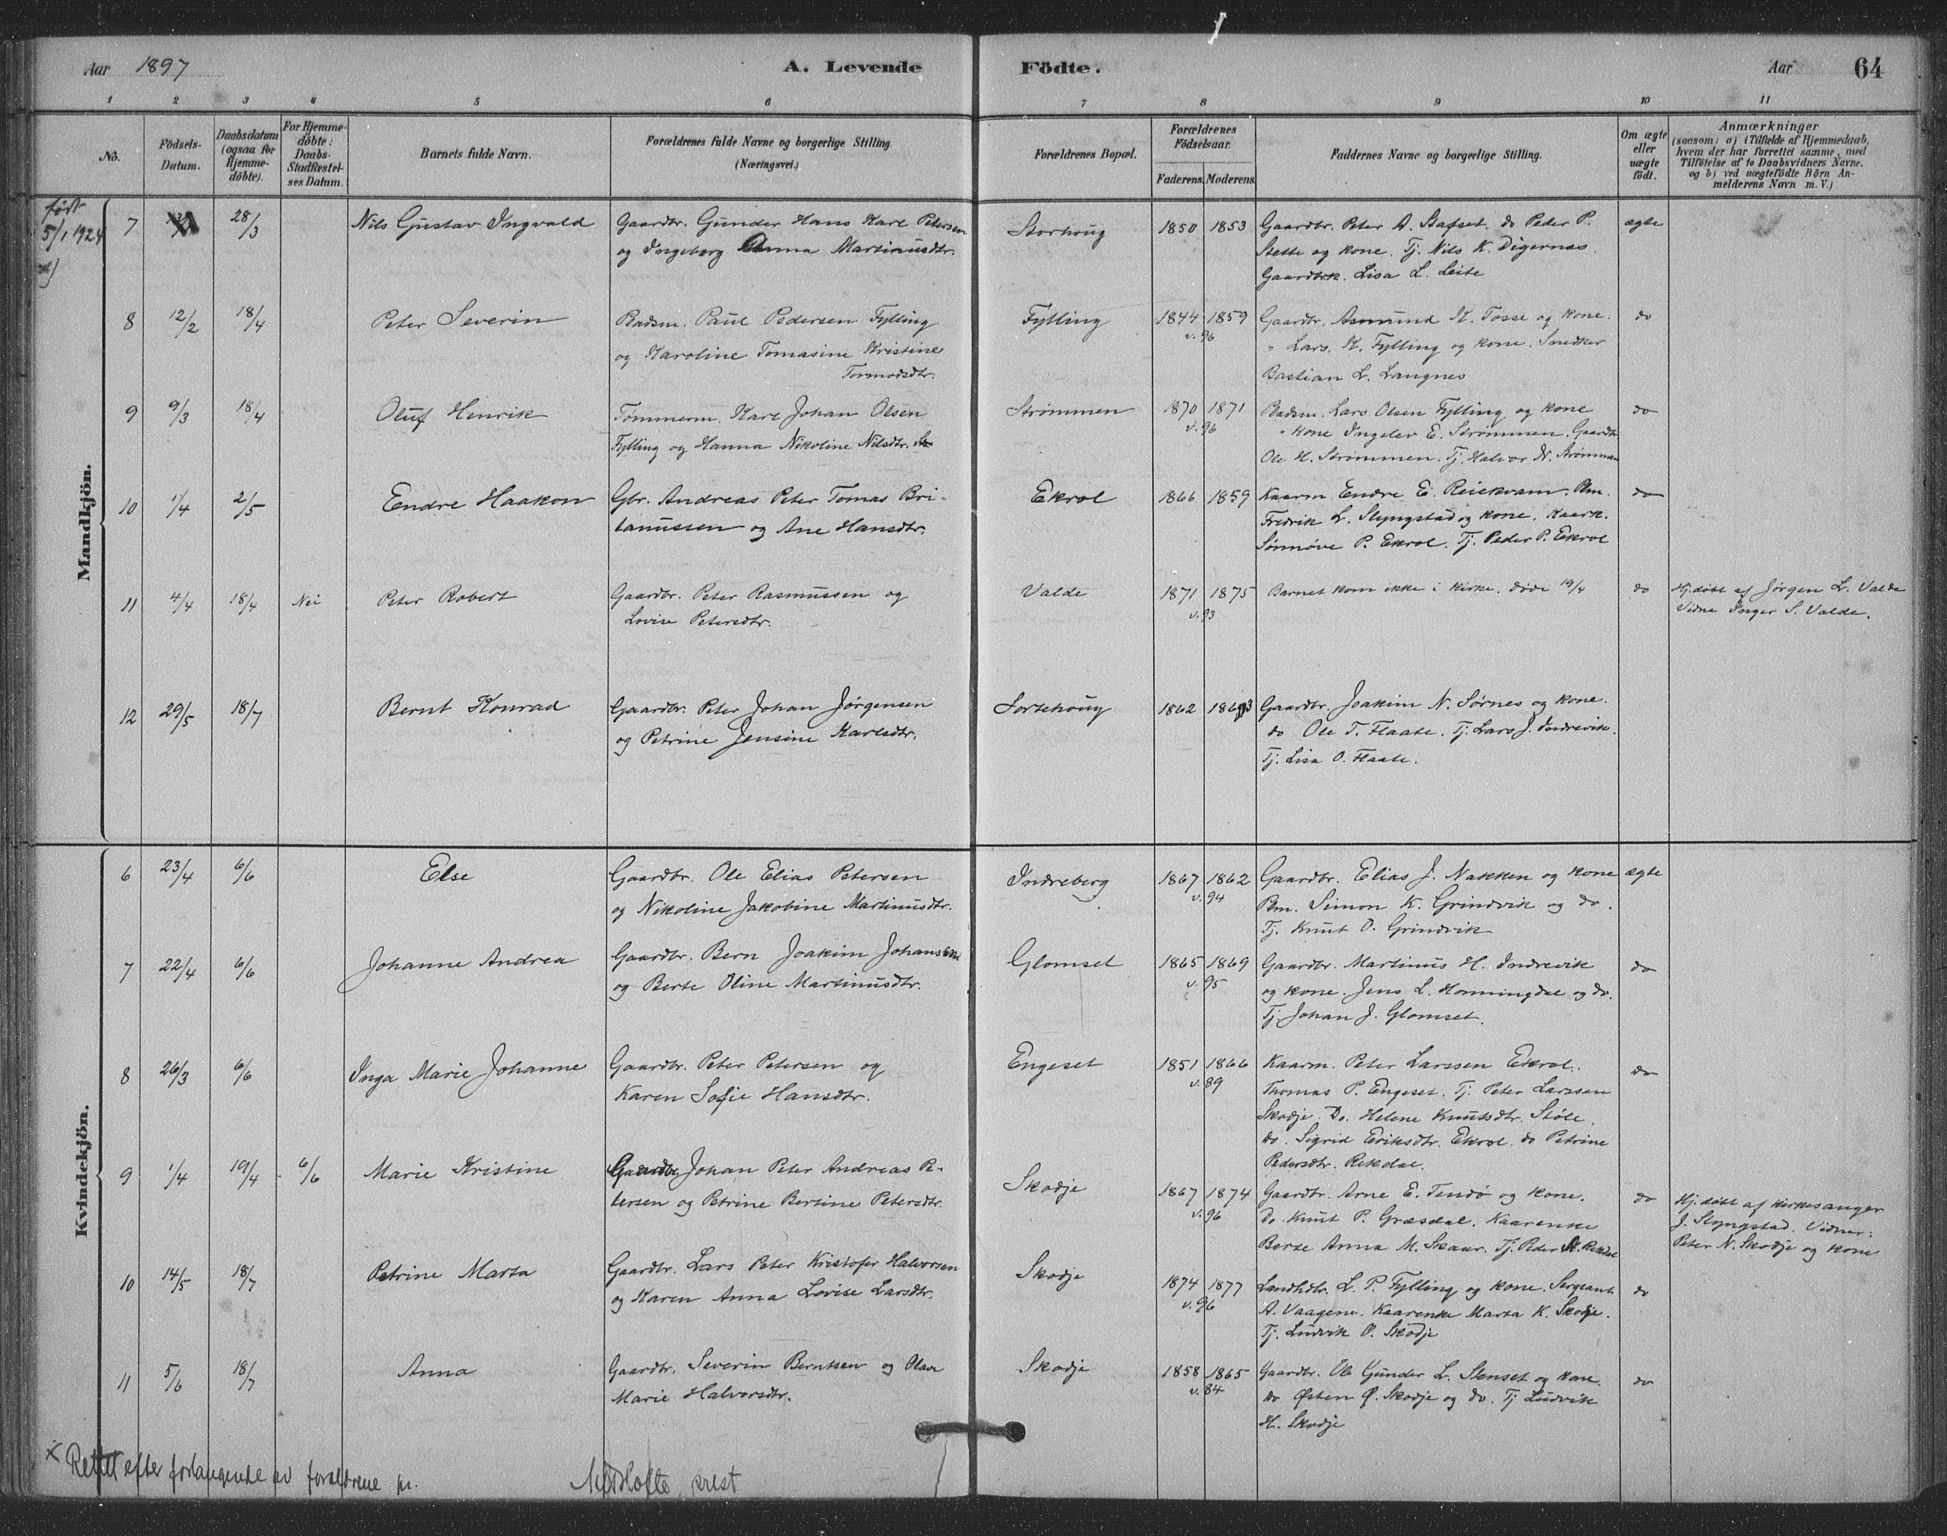 Aar 1897 A. Levende Födte. Aar 64
1 2 3 4 5 6 7 8 9 10 11
No. Födsels-Datum. Daabsdatum (ogsaa for Hjemme-döbte). For Hjemme-döbte: Daabs-Stadfæstel-ses Datum. Barnets fulde Navn. Forældrenes fulde Navne og borgerlige Stilling. (Næringsvei.) Forældrenes Bopæl. Forældrenes Födselsaar. Faderens. Moderens. Faddernes Navne og borgerlige Stilling. Om ægte eller uægte födt. Anmærkninger (saasom: a) i Tilfælde af Hjemmedaab, hvem der har forrettet samme, med Tilföielse af to Daabsvidners Navne. og b) ved uægtefödte Börn An-melderens Navn m. V.)
Mandkjön.
født
5/1 1924
7 28/3 Nils Gustav Ingvald Gaardbr. Gunder Hans Karl Petersen Storhoug 1850 1853 Gaardbr. Peter A. Stafset. do Peder P. ægte
og Ingeborg Anna Martinusdtr. Stette og kone. Tj. Nils K. Digernas
Gaardbrk. Lisa L. Leite
8 12/2 18/4 Peter Severin Badsm. Paul Pedersen Fylling Fylling 1844 1859 Gaardbr. Asmund K. Tosse og kone. do
v. 96
og Karoline Tomasine Kristine " Lars K. Fylling og kone. Snedker
Tormodsdtr. Bastian L. Langnes
9 9/3 18/4 Oluf Henrik Tømmerm. Karl Johan Olsen Strømmen 1870 1871 Badsm. Lars Olsen Fylling og kone do
v. 96
Fylling og Hanna Nikoline Nilsdtr. " kone Ingelev E. Strømmen. Gaardbr
Ole H. Strømmen. Tj. Halvor N. Strømmen
10 1/4 2/5 Endre Haakon Gbr. Andreas Peter Tomas Bri- Ekrol 1866 1859 Kaarm Endre E. Reiekvam. do
tanussen og Ane Hansdtr. Fredrik L. Slyngstad og kone. Kaark.
Sønnøve P. Ekrol. Tj. Peder P. Ekrol
11 4/4 18/4 Nei Peter Robert Gaardbr. Peter Rasmussen og Valde 1871 1875 Barnet kom ikke i kirke, døde 19/4 do Hj.døbt af Jørgen L. Valde
v. 93
Lovise Petersdtr. Vidne Inger S. Valde.
12 29/5 18/7 Bernt Konrad Gaardbr. Peter Johan Jørgensen Sortehoug 1862 1863 Gaardbr. Joakim N. Sørnes og kone.
og Petrine Jensine Karlsdtr. do Ole T. Flaate. Tj. Lars J. Indrevik.
Tj. Lisa O. Flaate.
Kvindekjön.
6 23/4 6/6 Else Gaardbr. Ole Elias Petersen Indreberg 1867 1862 Gaardbr. Elias J. Nakken og kone ægte
v. 94
og Nikoline Jakobine Martinusdtr. Bm. Simon K. Grindvik og do.
Tj. Knut O. Grindvik
7 22/4 6/6 Johanne Andrea Gaardbr. Bern Joakim Johansen Glomset 1865 1869 Gaardbr. Martinus H. Indrevik do
v. 95
og Berte Oline Martinusdtr. og kone. Jens L. Honningdal og do.
Tj. Johan J. Glomset.
8 26/3 6/6 Inga Marie Johanne Gaardbr. Peter Petersen og Engeset 1851 1866 Kaarm. Peter Larssen Ekrol. do
v. 89
Karen Sofie Hansdtr. Thomas P. Engeset. Tj. Peter Larssen
Skodje. Do. Helene Knutsdtr. Støle.
do. Sigrid Eriksdtr. Ekrol. do Petrine
Pedersdtr. Rekdal.
9 1/4 19/4 6/6 Marie Kristine Gaardbr Johan Peter Andreas Pe- Skodje 1867 1874 Gaardbr. Arne E. Tendø og kone. do Hj.døbt af kirkesanger
v. 96
tersen og Petrine Bertine Petersdtr. Do Knut P. Græsdal. Kaarenke J. Slyngstad. Vidner:
Berte Anna M. Skaar. Tj. Peder Peter N. Skodje og kone
10 14/5 18/7 Petrine Marta Gaardbr. Lars Peter Kristofer Halvorsen Skodje 1874 1877 Landhdtr. L. P. Fylling og kone. Sergeant do
v. 96
og Karen Anna Lovise Larsdtr. A. Vaagene. Kaarenke Marta K. Skodje.
Tj. Ludvik O. Skodje
11 5/6 18/7 Anna Gaardbr. Severin Berntsen og Olave Skodje 1858 1865 Gaardbr. Ole Gunder L. Stenset og kone. do
v. 84
Marie Halvorsdtr. do Østen Ø. Skodje og do. Tj Ludvik
H. Skodje
x Rettet efter forlangende av forældrene
prest